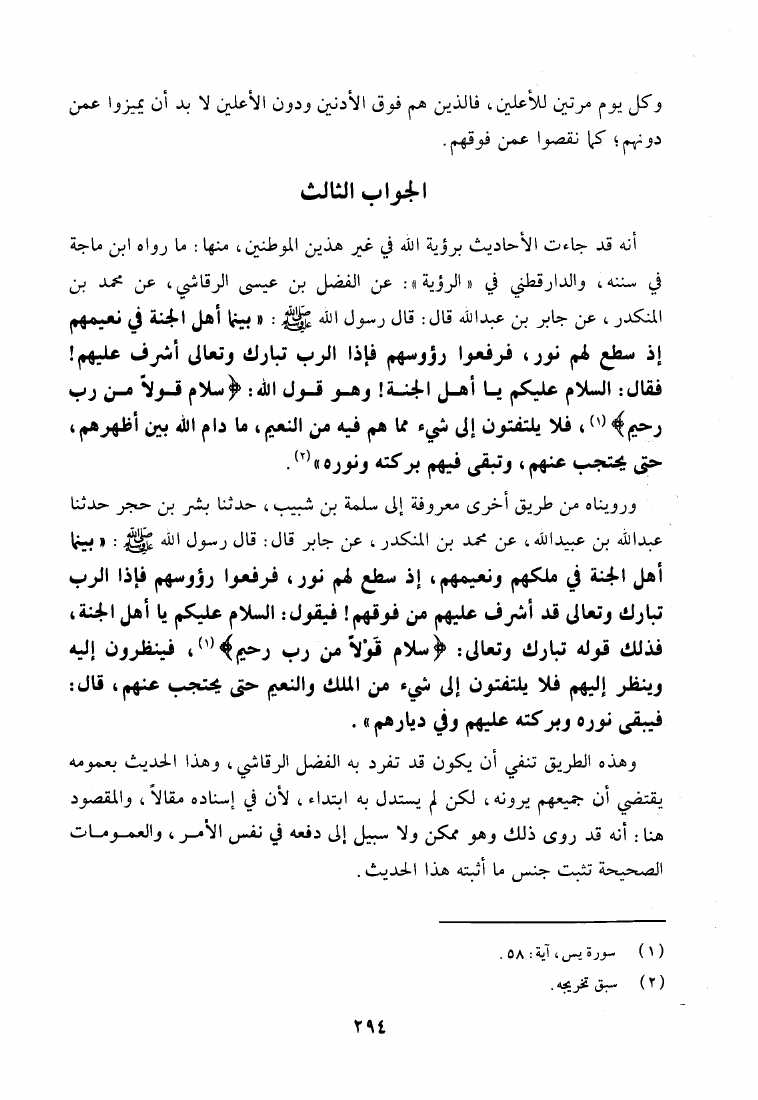 وكل يوم مرتين للأعلين، فالذين هم فوق الأدنين ودون الأعلين لا بد أن يميزوا عمن
دونهم؛ كما نقصوا عمن فوقهم.
الجواب الثالث
أنه قد جاءت الأحاديث برؤية الله في غير هذين الموطنين، منها: ما رواه ابن ماجة
في سننه، والدارقطني في «الرؤية»: عن الفضل بن عيسى الرقاشي، عن محمد بن
المنكدر، عن جابر بن عبدالله قال: قال رسول الله ﷺ: «بينما أهل الجنة في نعيمهم
إذ سطع لهم نور، فرفعوا رؤوسهم فإذا الرب تبارك وتعالى أشرف عليهم!
فقال: السلام عليكم يا أهل الجنة! وهو قول الله: ﴿سلام قولاً من رب
رحيم﴾(١)، فلا يلتفتون إلى شيء مما هم فيه من النعيم، ما دام الله بين أظهرهم،
حتى يحتجب عنهم، وتبقى فيهم بركته ونوره»(٢).
ورويناه من طريق أخرى معروفة إلى سلمة بن شبيب، حدثنا بشر بن حجر حدثنا
عبدالله بن عبيدالله، عن محمد بن المنكدر، عن جابر قال: قال رسول الله ﷺ: «بينما
أهل الجنة في ملكهم ونعيمهم، إذ سطع لهم نور، فرفعوا رؤوسهم فإذا الرب
تبارك وتعالى قد أشرف عليهم من فوقهم! فيقول: السلام عليكم يا أهل الجنة،
فذلك قوله تبارك وتعالى: ﴿سلام قَوْلاً من رب رحيم﴾(١)، فينظرون إليه
وينظر إليهم فلا يلتفتون إلى شيء من الملك والنعيم حتى يحتجب عنهم، قال:
فيبقى نوره وبركته عليهم وفي ديارهم».
وهذه الطريق تنفي أن يكون قد تفرد به الفضل الرقاشي، وهذا الحديث بعمومه
يقتضي أن جميعهم يرونه، لكن لم يستدل به ابتداء، لأن في إسناده مقالاً، والمقصود
هنا: أنه قد روى ذلك وهو ممكن ولا سبيل إلى دفعه في نفس الأمر، والعمومات
الصحيحة تثبت جنس ما أثبته هذا الحديث.
(١) سورة يس، آية: ٥٨.
(٢) سبق تخريجه.
٢٩٤